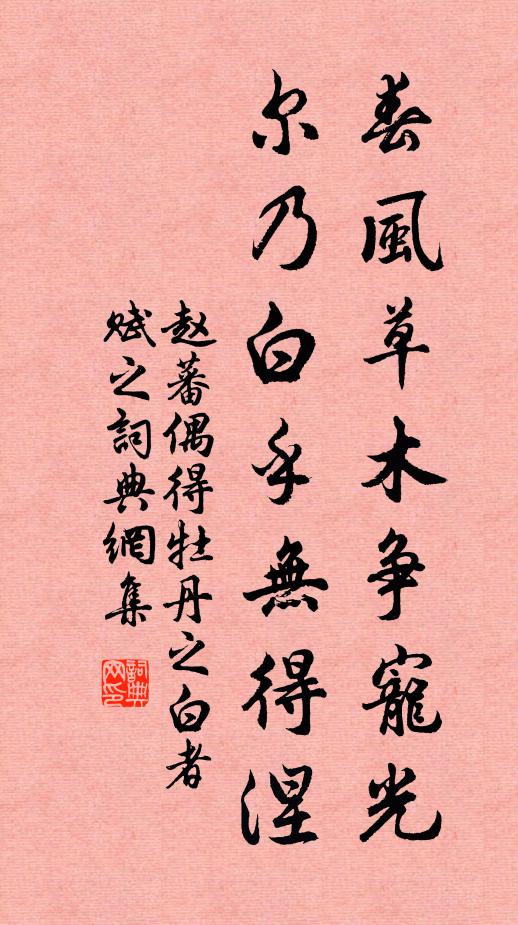 春風草木争寵光
尔乃白乎無得涅
赵蕃偶得牡丹之白者
赋之詞典網集
詞典网印